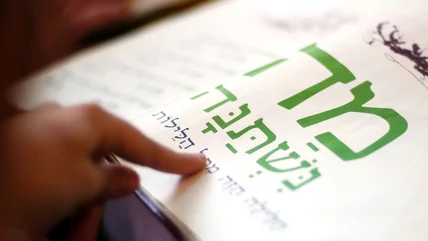 מַה
נִּשְׁתַּנָּה
הַלַּיְלָה הַזֶּה מִכָּל הַלֵּילוֹת